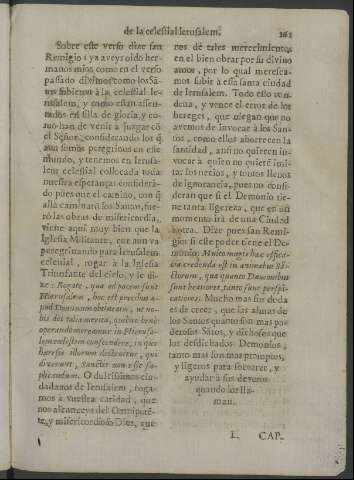 de la celestial Ierusalem. 262
Sobre este verso dize san
Remigio: ya aveys oido her-
manos mios como en el verso
passado diximos como los Sã-
tos subieron à la celestial Ie-
rusalem, y como estan assen-
tados en silla de gloria, y co-
mo han de venir à juzgar cõ
el Señor, considerando los q̃
aun somos peregrinos en este
mundo, y tenemos en Ierusa-
lem celestial collocada toda
nuestra esperança: consideră-
do pues que el camino, con q̃
allà caminarõ los Santos, fue-
rõ las obras de misericordia,
viene aqui muy bien que la
Iglesia Militante, que aun va
peregrinando para Ierusalem
celestial, rogar à la Iglesia
Triunfante del cielo, y le di-
ze: Rogate, quæ ad pacem sunt
Hierusalem, hoc est precibus a-
pud Dominum obtinete, ut no-
bis det talia merita, quibus benè
operando mereamur in Hierusa-
lem cælestem conscendere, in quo
hæresis illorum destruitur, qui
dicunt, sanctos non esse su-
plicandum. O dulcissimos ciu-
dadanos de Ierusalem, roga-
mos à vuestra caridad, que
nos alcanceys del Omnipotẽ-
te, y misericordioso Dios, que
nos dè tales merecimientos
en el bien obrar por su divino
amor, por lo qual merezca-
mos subir à essa santa ciudad
de Ierusalem. Todo esto con-
dena, y vence el error de los
hereges, que niegan que no
avemos de invocar à los San-
tos, como ellos aborrecen la
santidad, assi no quieren in-
vocar à quien no quierē imi-
tar: los necios, y tontos llenos
de ignorancia, pues no consi-
deran que si el Demonio tie-
ne tanta ligereza, que en un
momento irà de una Ciudad
à otra. Dize pues san Remi-
gio si este poder tiene el De-
monio: Multo magis hæc effica-
cia credenda est in animabus Sã-
ctorum, quæ quanto Dæmonibus
sunt beatiores, tanto sunt perspi-
catiores. Mucho mas sin duda
es de creer, que las almas de
los Santos quanto son mas po-
derosos Sãtos, y dichosos que
los desdichados Demonios,
tanto mas son mas promptos,
y ligeros para socorrer, y
ayudar à sus devotos
quando los lla-
man.
L CAP-